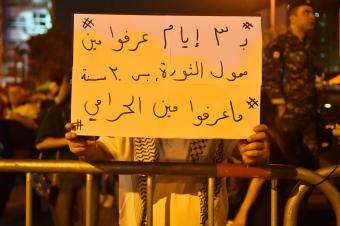 # ب ٣ إيام عرفوا مين
ممول الثورة، بس ٣٠ سنة
ماعرفوا مين الحرامي #
#